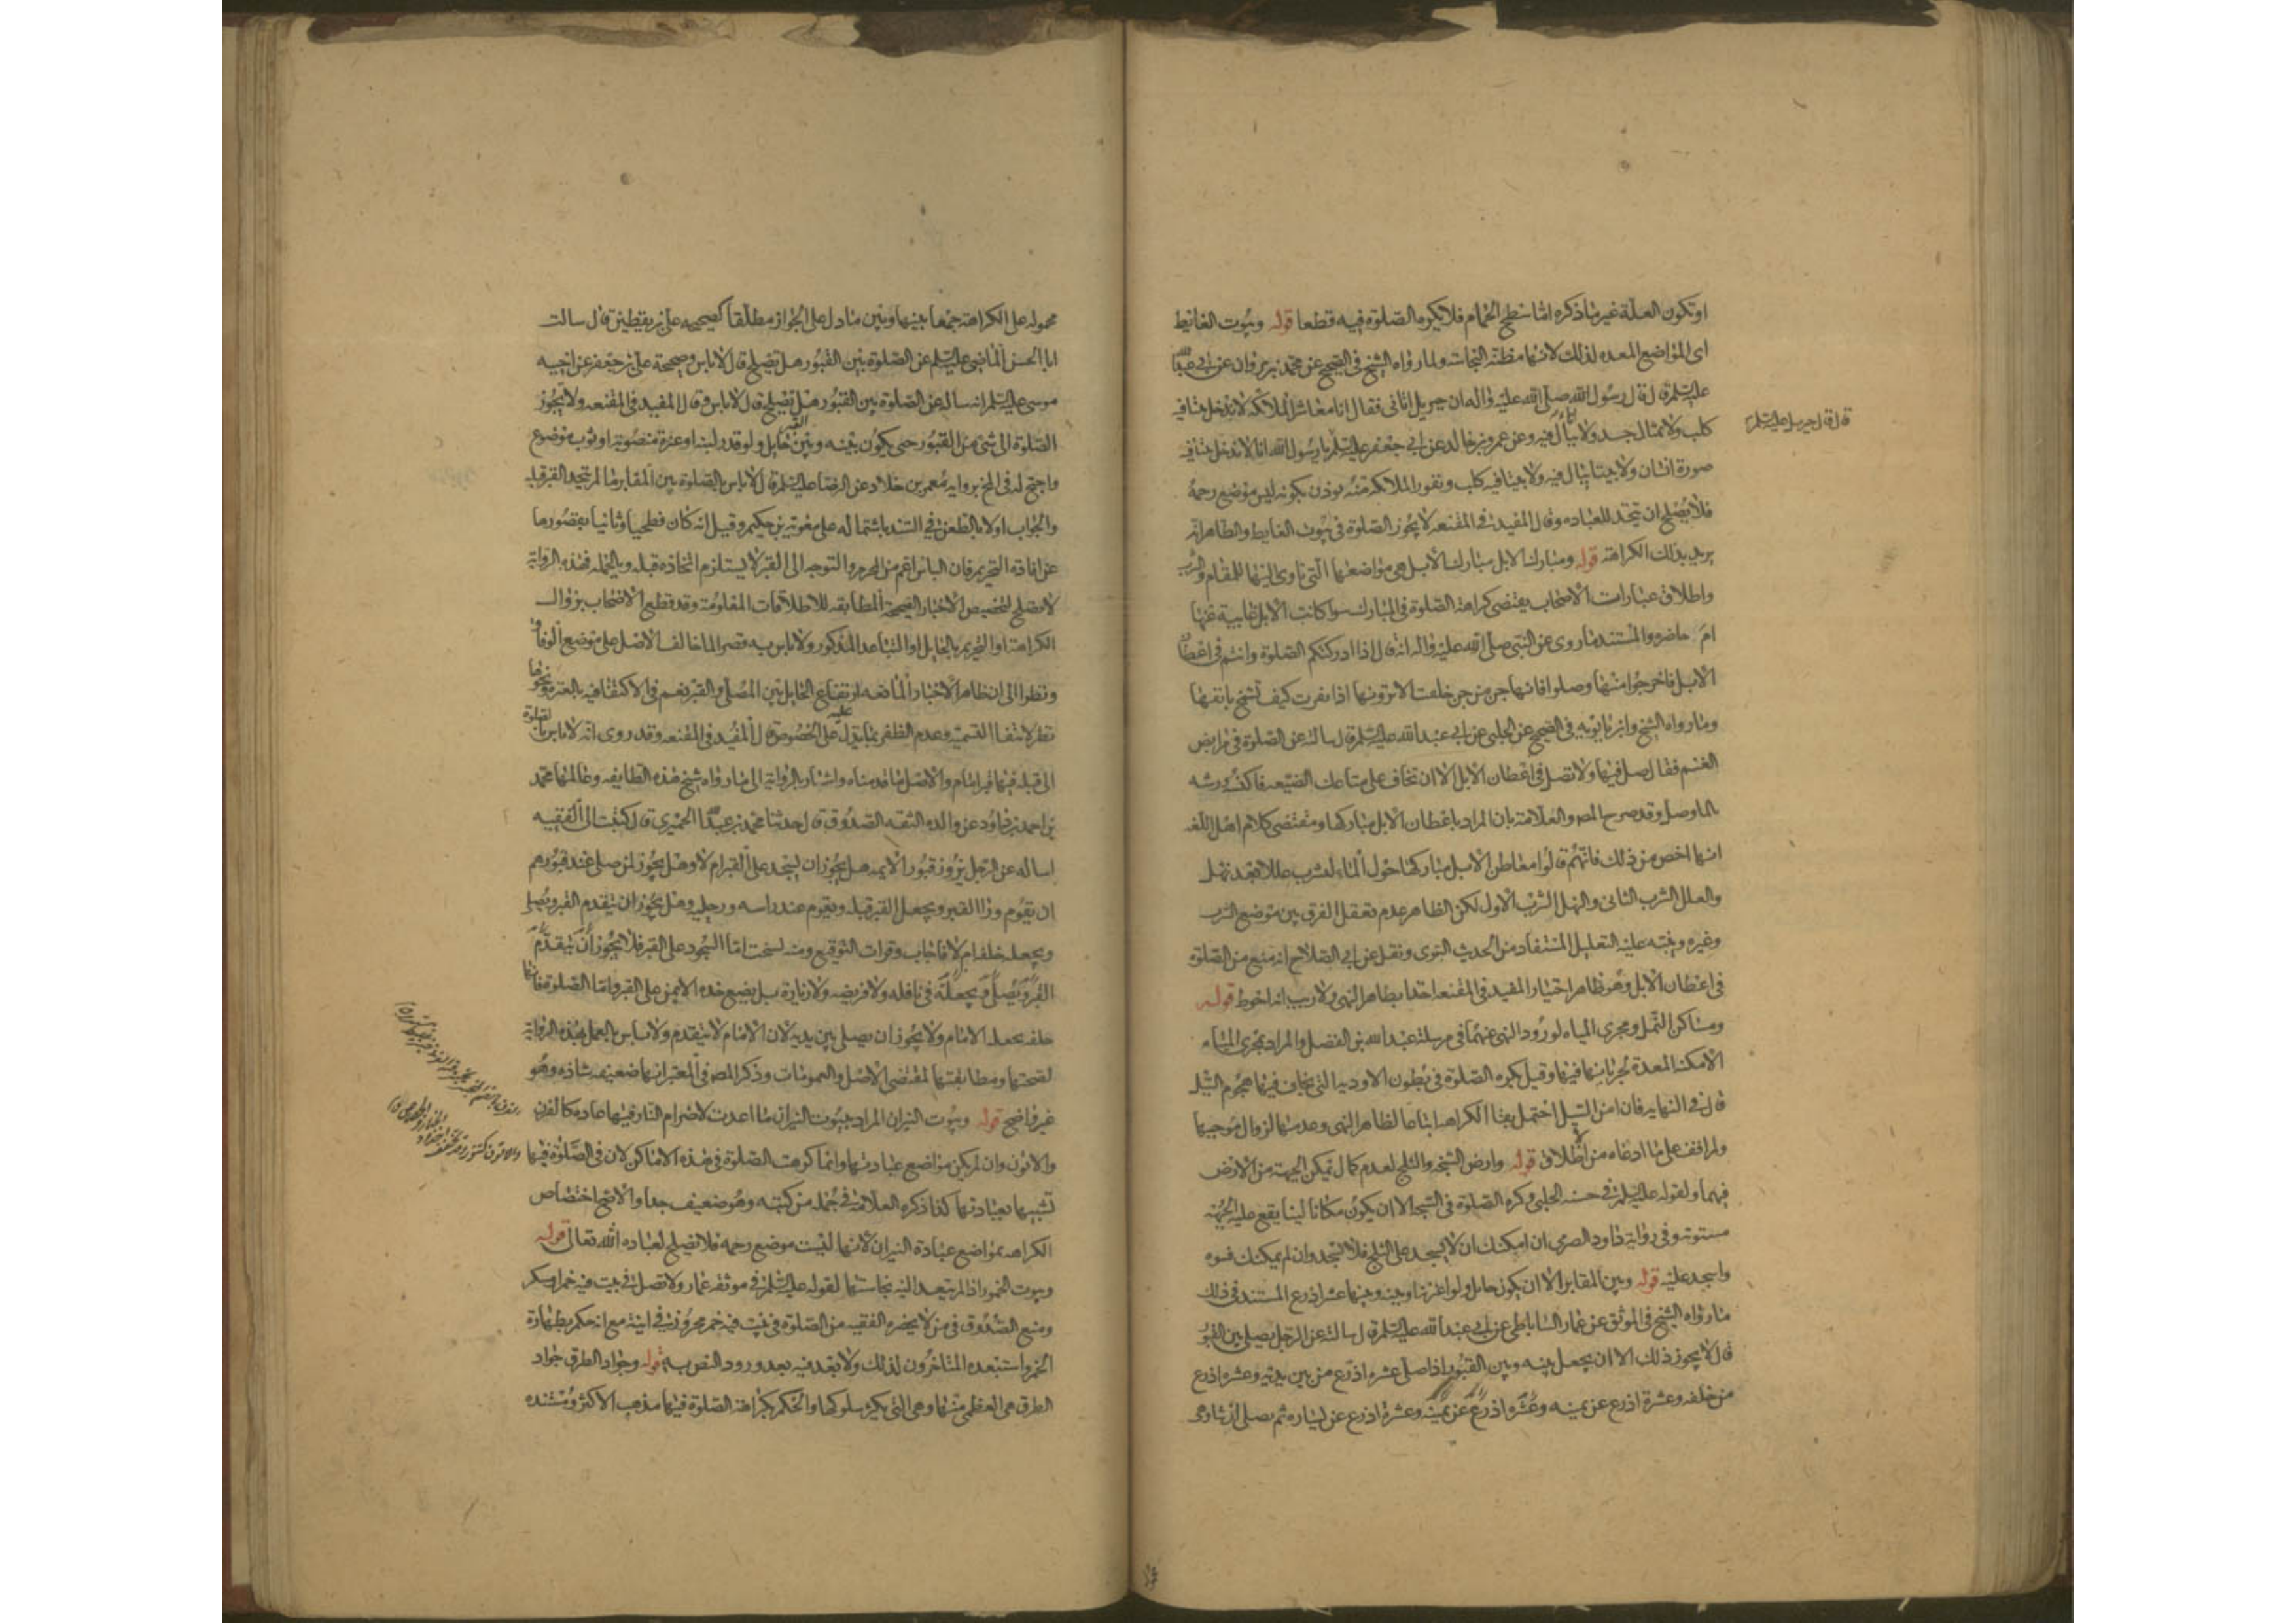 او تكون العلة غير ما ذكره اما سطح الحمام فلا يكره الصلوة فيه قطعا قوله وبيوت الغائط
اى المواضع المعده لذلك لانها مظنة النجاسة ولما رواه الشيخ فى الصحيح عن محمد بن مروان عن ابى عبدالله
عليه السلم قال قال رسول الله صلى الله عليه واله ان جبريل اتانى فقال انا معاشر الملائكه لا ندخل بيتا فيه
كلب ولا تمثال جسد ولا يبال فيه وعن عمرو بن خالد عن ابى جعفر عليه السلم يا رسول الله انا لا ندخل بيتا فيه
قال قال جبريل عليه السلم
صورة انسان ولا بيتا يبال فيه ولا بيتا فيه كلب ونفور الملائكه منه يوذن بكونه ليس موضع رحمة
فلا يصلح ان يتخذ للعباده وقال المفيد فى المقنعه لا يجوز الصلوة فى بيوت الغايط والظاهر انه
يريد بذلك الكراهة قوله ومبارك الابل مبارك الابل هى مواضعها التى تاوى اليها للمقام والشرب
واطلاق عبارات الاصحاب يقتضى كراهة الصلوة فى المبارك سوا كانت الابل غايبة عنها
ام حاضره والمستند ما روى عن النبى صلى الله عليه واله انه قال اذا ادركتكم الصلوة وانتم فى اعطان
الابل فاخرجوا منها وصلوا فانها جن من جن خلقت الا ترونها اذا نفرت كيف تشمخ بانفها
وما رواه الشيخ وابن بابويه فى الصحيح عن الحلبى عن ابى عبد الله عليه السلم قال سالته عن الصلوة فى مرابض
الغنم فقال صل فيها ولا تصل فى اعطان الابل الا ان تخاف على متاعك الضيعه فاكنسه ورشه
بالما وصل وقد صرح المص والعلامة بان المراد باعطان الابل مباركها ومقتضى كلام اهل اللغه
انها اخص من ذلك فانهم قالوا معاطن الابل مباركها حول الماء لتشرب عللا بعد نهل
والعلل الشرب الثانى والنهل الشرب الاول لكن الظاهر عدم تعقل الفرق بين موضع الشرب
وغيره وينبه عليه التعليل المستفاد من الحديث النبوى ونقل عن ابى الصلاح انه منع من الصلوة
فى اعطان الابل وهو ظاهر اختيار المفيد فى المقنعه اخذا بظاهر النهى ولا ريب انه احوط قوله
ومساكن النمل ومجرى المياه لورود النهى عنهما فى مرسلة عبد الله بن الفضل والمراد بمجرى المياه
الامكنه المعدة لجريانها فيها وقيل يكره الصلوة فى بطون الاوديه التى يخاف فيها هجوم السيل
قال فى النهايه فان امن السيل احتمل بقا الكراهه اتباعا لظاهر النهى وعدمها لزوال موجبها
ولم اقف على ما ادعاه من اطلاق قوله وارض السبخه والثلج لعدم كمال تمكن الجبهة من الارض
فيهما ولقوله عليه السلم فى حسنه الحلبى وكره الصلوة فى السبخه الا ان يكون مكانا لينا يقع عليه الجبهة
مستوية وفى رواية داود الصرمى ان امكنك ان لا تسجد على الثلج فلا تسجد وان لم يمكنك فسوه
واسجد عليه قوله وبين المقابر الا ان يكون حايل ولو عنزة او بينه وبينها عشر اذرع المستند فى ذلك
ما رواه الشيخ فى الموثق عن عمار الساباطى عن ابى عبد الله عليه السلم قال سالته عن الرجل يصلى بين القبور
قال لا يجوز ذلك الا ان يجعل بينه وبين القبور اذا صلى عشره اذرع من بين يديه وعشره اذرع
من خلفه وعشرة اذرع عن يمينه وعشره اذرع عن يمينه وعشرة اذرع عن يساره ثم يصلى ان شا وهى
محموله على الكراهة جمعا بينها وبين ما دل على الجواز مطلقا كصحيحه على بن يقطين قال سالت
ابا الحسن الماضى عليه السلم عن الصلوة بين القبور هل تصلح قال لا باس وصحيحة على بن جعفر عن اخيه
موسى عليه السلم انه ساله عن الصلوة بين القبور هل تصلح قال لا باس وقال المفيد فى المقنعه ولا يجوز
الصلوة الى شئ من القبور حتى يكون بينه وبين القبر حايل ولو قدر لبنه او عنزة منصوبة او ثوب موضوع
واحتج له فى المخ برواية معمر بن خلاد عن الرضا عليه السلم قال لا باس بالصلوة بين المقابر ما لم يتخذ القبر قبلة
والجواب اولا بالطعن فى السند باشتماله على معوية بن حكيم وقيل انه كان فطحيا وثانيا بقصورها
عن افادة التحريم فان الباس اعم من المحرم والتوجه الى القبر لا يستلزم اتخاذه قبلة وبالجمله فهذه الرواية
لا تصلح لتخصيص الاخبار الصحيحة المطابقه للاطلاقات المعلومة وقد قطع الاصحاب بزوال
الكراهة او التحريم بالحايل او التباعد المذكور ولا باس به قصرا لما خالف الاصل على موضع الوفاق
ونظرا الى ان ظاهر الاخبار المانعه ارتفاع الحايل بين المصلى والقبر نعم فى الاكتفا فيه بالعنزه ونحوها
نظر لانتفا التسمية وعدم الظفر بما يدل عليه على الخصوص قال المفيد فى المقنعه وقد روى انه لا باس بالصلوة
الى قبلة فيها قبر امام والاصل ما قدمناه واشار بالرواية الى ما رواه شيخ هذه الطايفه وعالمها محمد
بن احمد بن داود عن والده الثقه الصدوق قال حدثنا محمد بن عبدالله الحميرى قال كتبت الى الفقيه
اساله عن الرجل يزور قبور الايمه هل يجوز ان يسجد على القبر ام لا وهل يجوز لمن صلى عند قبورهم
ان يقوم ورا القبر ويجعل القبر قبلة ويقوم عند راسه ورجليه وهل يجوز ان يتقدم القبر ويصلى
ويجعله خلفه ام لا فاجاب وقرات التوقيع ومنه نسخت اما السجود على القبر فلا يجوز ان يتقدم
القبر ويصلى ويجعله فى نافله ولا فريضه ولا زيارة بل يضع خده الايمن على القبر واما الصلوة فانها
خلفه يجعله الامام ولا يجوز ان يصلى بين يديه لان الامام لا يتقدم ولا باس بالعمل بهذه الرواية
لصحتها ومطابقتها لمقتضى الاصل والعمومات وذكر المص فى المعتبر انها ضعيفه شاذه وهو
غير واضح قوله وبيوت النيران المراد ببيوت النيران ما اعدت لاضرام النار فيها عادة كالفرن
والاتون وان لم يكن مواضع عبادتها وانما كرهت الصلوة فى هذه الاماكن لان فى الصلوة فيها
تشبها بعبادتها كذا ذكره العلامة فى جملة من كتبه وهو ضعيف جدا والاصح اختصاص
الكراهه بمواضع عبادة النيران لانها ليست موضع رحمه فلا تصلح لعباده الله تعالى قوله
وبيوت الخمور اذا لم يتعد اليه نجاستها لقوله عليه السلم فى موثقه عمار ولا تصل فى بيت فيه خمر او مسكر
ومنع الصدوق فى من لا يحضره الفقيه من الصلوة فى بيت فيه خمر محروز فى انية مع انه حكم بطهارة
الخمر واستبعده المتاخرون لذلك ولا بعد فيه بعد ورود النص به قوله وجواد الطرق جواد
الطرق هى العظمى منها وهى التى يكثر سلوكها والحكم بكراهة الصلوة فيها مذهب الاكثر ومستنده